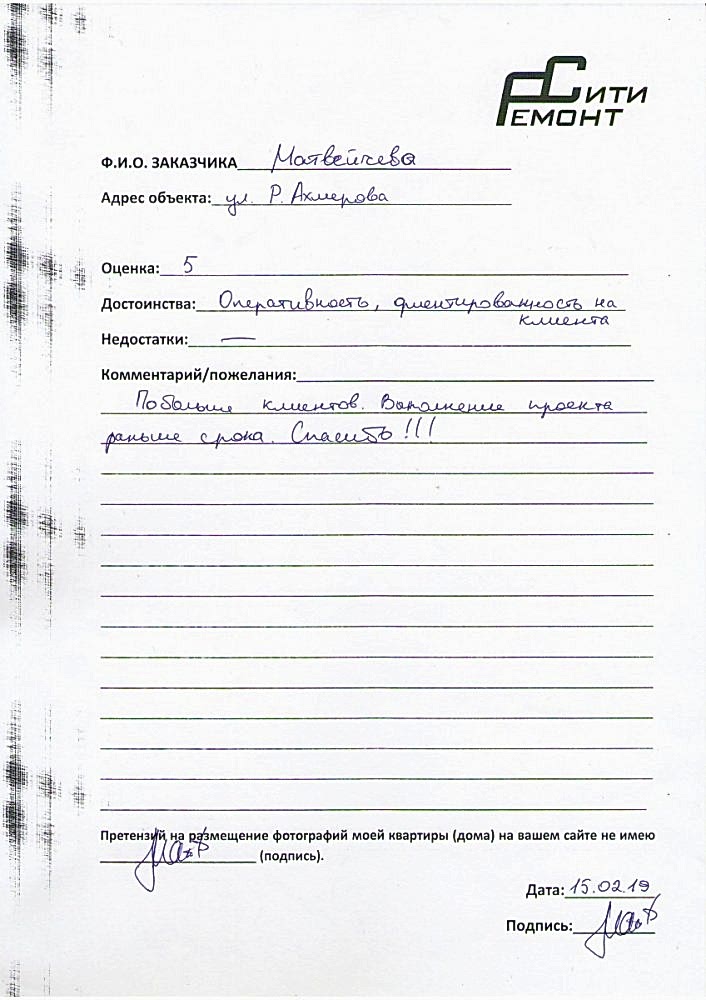 СИТИ
РЕМОНТ
Ф.И.О. ЗАКАЗЧИКА Матвейчева
Адрес объекта: ул. Р. Ахмерова
Оценка: 5
Достоинства: Оперативность, ориентированность на
клиента
Недостатки: —
Комментарий/пожелания:
Побольше клиентов. Выполнение проекта
раньше срока. Спасибо!!!
Претензий на размещение фотографий моей квартиры (дома) на вашем сайте не имею
(подпись).
Дата: 15.02.19
Подпись: